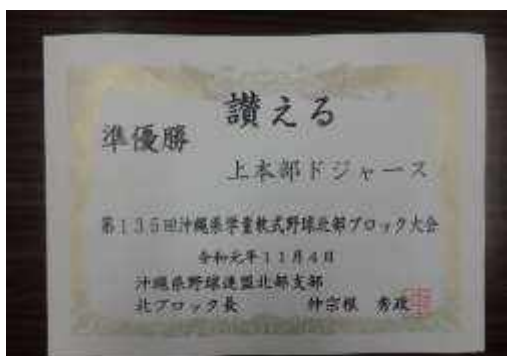 讃える
準優勝
上本部ドジャース
第135回沖縄県学童軟式野球北部ブロック大会
令和元年11月4日
沖縄県野球連盟北部支部
北ブロック長 仲宗根 秀政